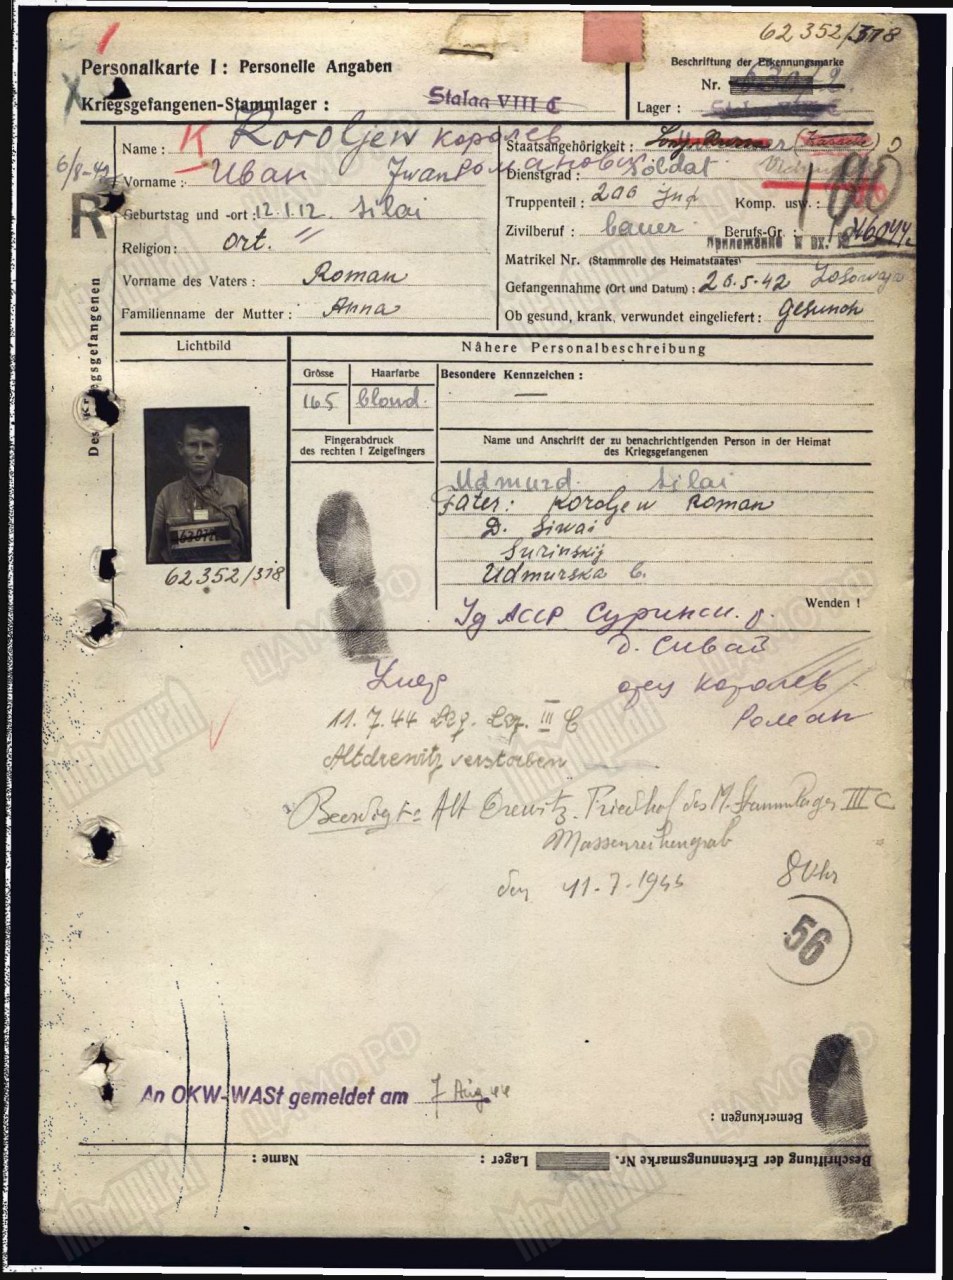 62352/378
Personalkarte I: Personelle Angaben
Beschriftung der Erkennungsmarke
Nr.
Kriegsgefangenen-Stammlager: Stalag VIII C
Lager:
Name: K Koroljew Королев
Staatsangehörigkeit:
6/8-42
Vorname: Иван Iwan Романович
Dienstgrad: Soldat
R
Geburtstag und -ort: 12.1.12. Silai
Truppenteil: 200 Inf
Komp. usw.:
Religion: ort.
Zivilberuf: Bauer
Berufs-Gr.:
приложение к вх. №
Matrikel Nr. (Stammrolle des Heimatstaates)
Vorname des Vaters: Roman
Gefangennahme (Ort und Datum): 26.5.42 Losowaja
Familienname der Mutter: Anna
Ob gesund, krank, verwundet eingeliefert: Gesund
Des Kriegsgefangenen
Lichtbild
Nähere Personalbeschreibung
Grösse
Haarfarbe
Besondere Kennzeichen:
165
blond.
—
Fingerabdruck
des rechten ! Zeigefingers
Name und Anschrift der zu benachrichtigenden Person in der Heimat
des Kriegsgefangenen
Udmurd. Silai
Fater: Koroljew Roman
D. Siwai
Surinskij
Udmurska
62352/378
Wenden !
Уд АССР Суринск. р.
д. Сивай
отец Королев
Роман
11.7.44
Altdrewitz verstorben
Beerdigt: Alt Drewitz. Friedhof des M. Stammlager III C
Massenreihengrab
den 11.7.1944 8 Uhr
56
An OKW-WASt gemeldet am 7 Aug 44
Bemerkungen:
Beschriftung der Erkennungsmarke Nr.
Lager:
Name:
Мемориал
ЦАМО.РФ